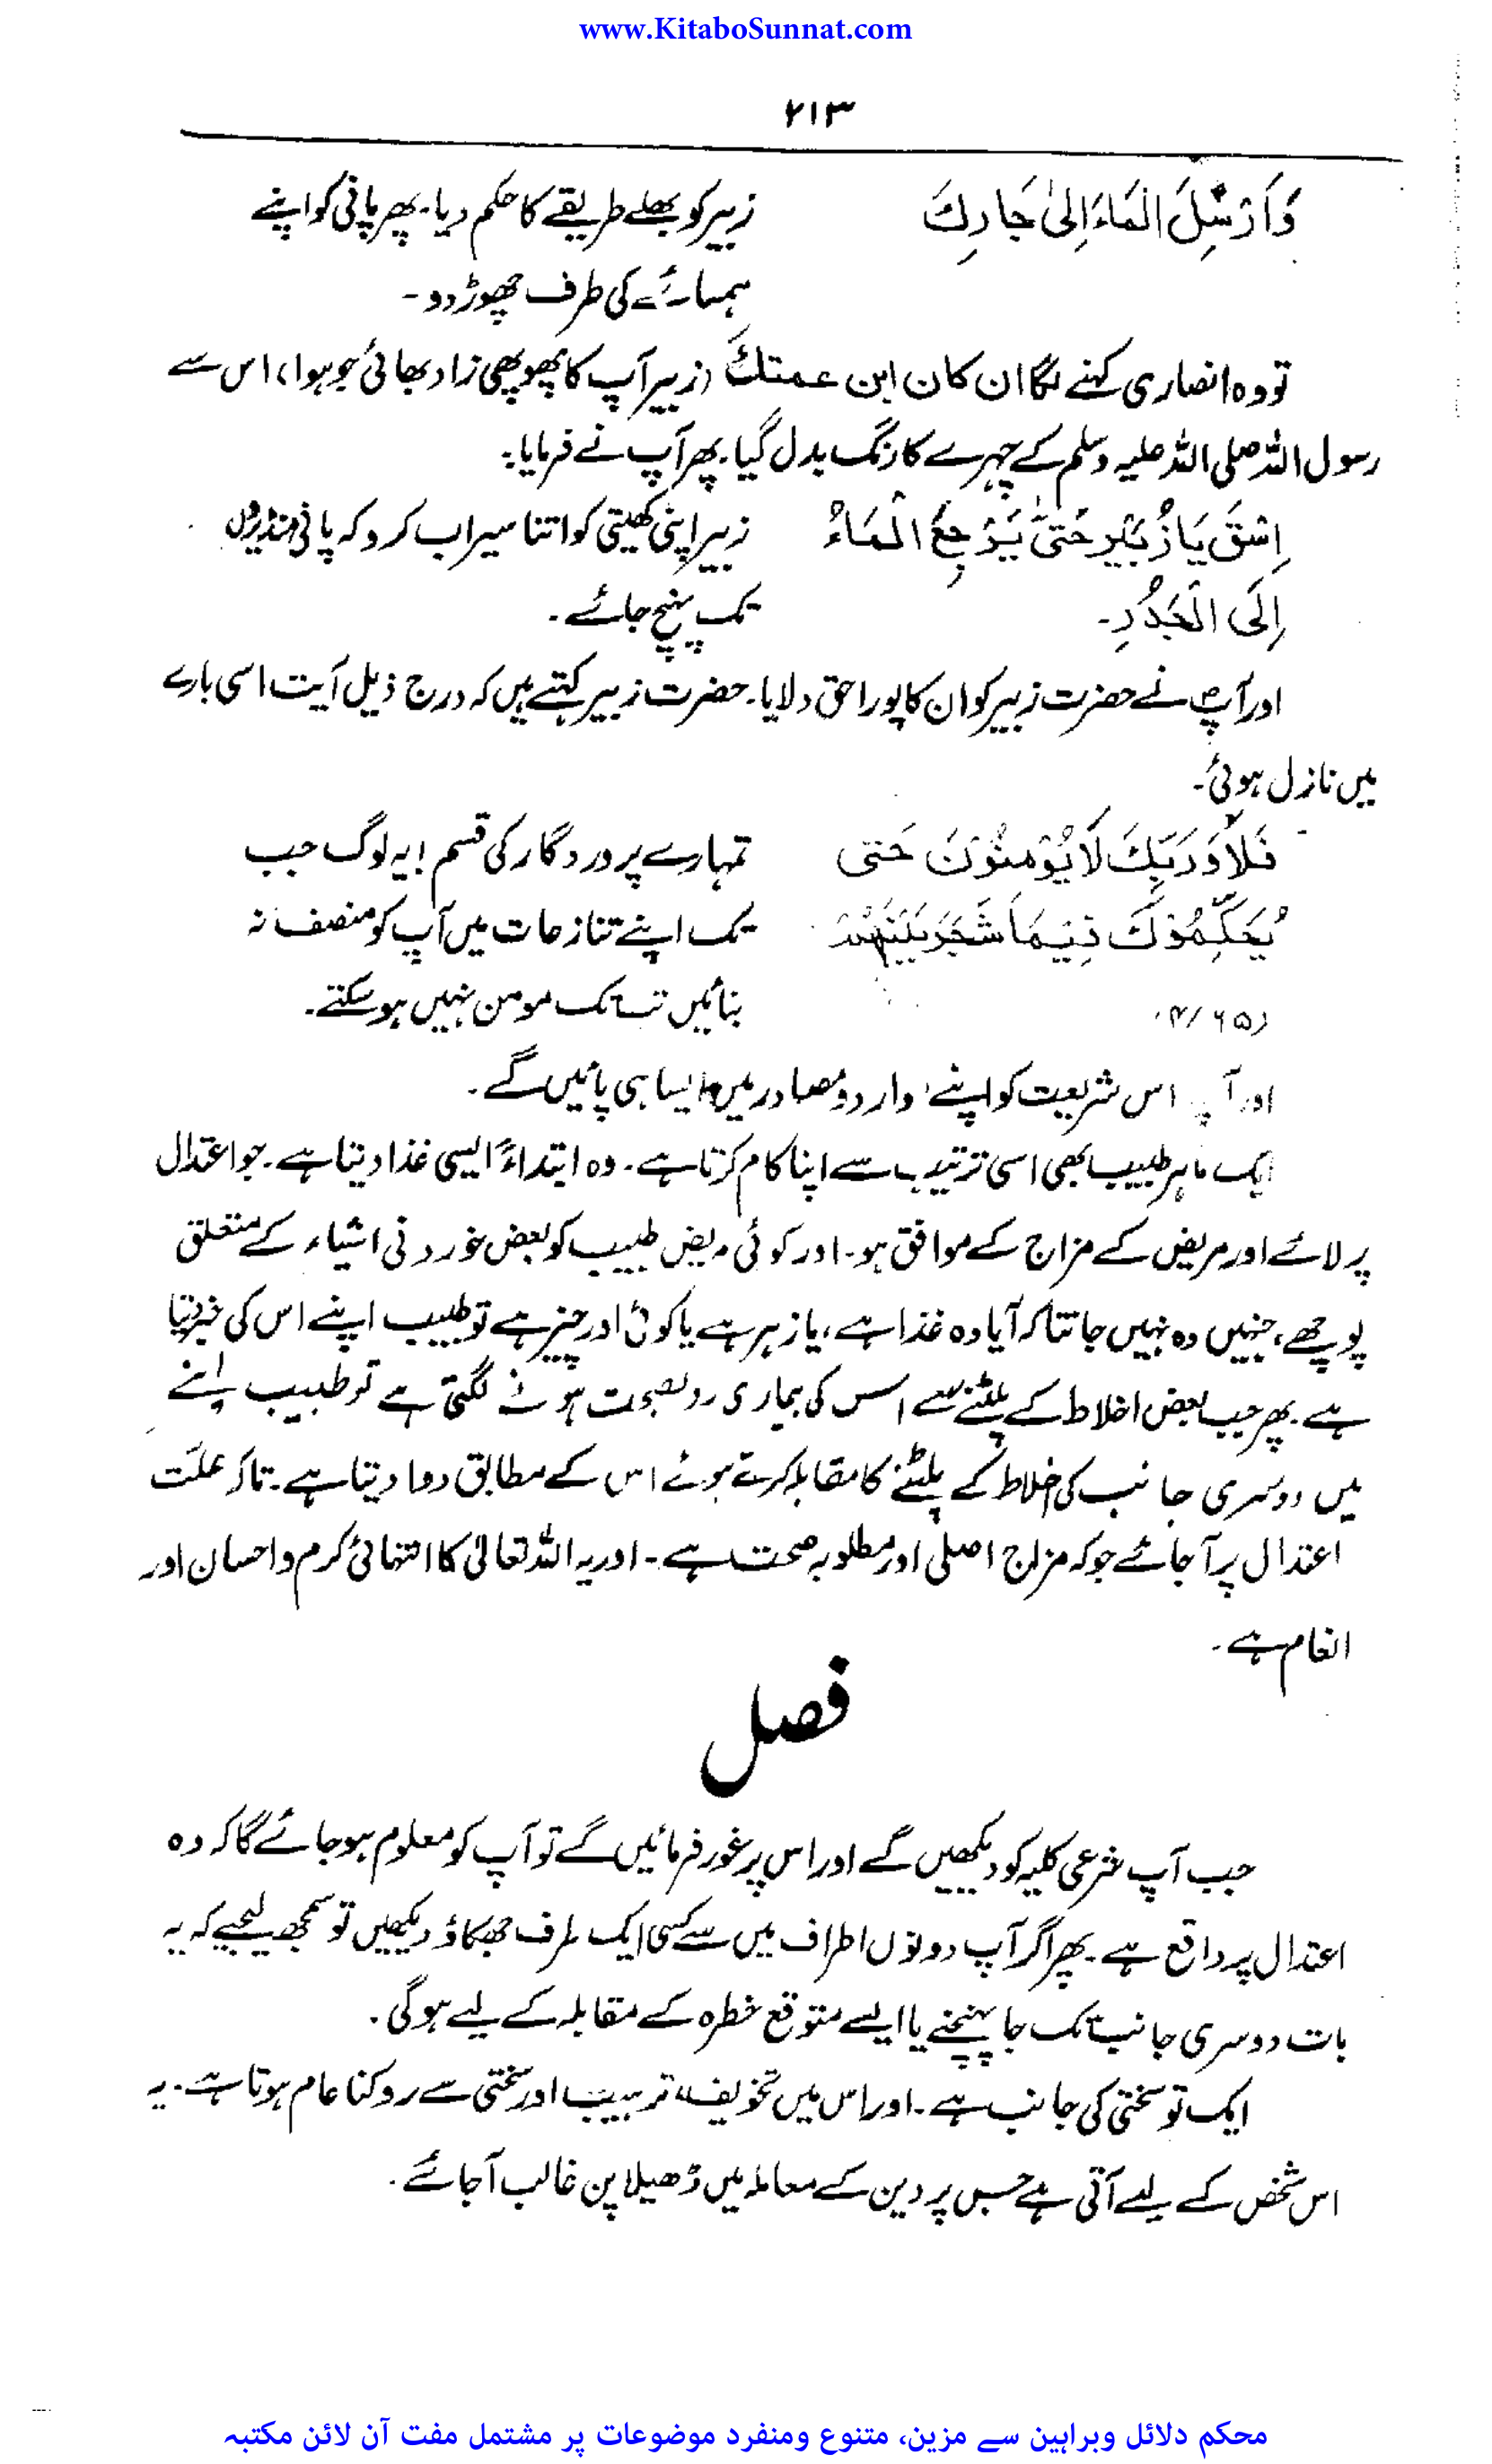 www.KitaboSunnat.com
۲۱۳
وَاَرْسِلَ الْمَاءَ اِلىٰ جَارِكَ زبیر کو بھلے طریقے کا حکم دیا۔ پھر پانی کو اپنے
ہمسائے کی طرف چھوڑ دو۔
تو وہ انصاری کہنے لگا ان کان ابن عمتكَ (زبیر آپ کا پھوپھی زاد بھائی جو ہوا) اس سے
رسول اللہ صلی اللہ علیہ وسلم کے چہرے کا رنگ بدل گیا۔ پھر آپ نے فرمایا۔
اِسْقَ يَا زُبَيْر حَتىّٰ يَرْجِعَ الْمَاءُ زبیر اپنی کھیتی کو اتنا سیراب کر دو کہ پانی منڈیروں
اِلَى الْجُدُرِ۔ تک پہنچ جائے۔
اور آپؐ نے حضرت زبیر کو ان کا پورا حق دلایا۔ حضرت زبیر کہتے ہیں کہ درج ذیل آیت اسی بارے
میں نازل ہوئی۔
فَلَا وَرَبِّكَ لَا يُؤْمِنُوْنَ حَتى تمہارے پروردگار کی قسم! یہ لوگ جب
يُحَكِّمُوْكَ فِيْمَا شَجَرَ بَيْنَهُمْ تک اپنے تنازعات میں آپ کو منصف نہ
(۴/۶۵) بنائیں تب تک مومن نہیں ہو سکتے۔
اور آپ اس شریعت کو اپنے وارد و مصادر میں ایسا ہی پائیں گے۔
ایک ماہر طبیب بھی اسی ترتیب سے اپنا کام کرتا ہے۔ وہ ابتداءً ایسی غذا دیتا ہے۔ جو اعتدال
پر لائے اور مریض کے مزاج کے موافق ہو۔ اور کوئی مریض طبیب کو بعض خوردنی اشیاء کے متعلق
پوچھے، جنہیں وہ نہیں جانتا کہ آیا وہ غذا ہے، یا زہر ہے یا کوئی اور چیز ہے تو طبیب اپنے اس کی خبر دیتا
ہے۔ پھر جب بعض اخلاط کے پلٹنے سے اس کی بیماری رو بصحت ہونے لگتی ہے تو طبیب اپنے
میں دوسری جانب کی اخلاط کے پلٹنے کا مقابلہ کرتے ہوئے اس کے مطابق دوا دیتا ہے۔ تاکہ علّت
اعتدال پر آ جائے جو کہ مزاج اصلی اور مطلوبہ صحت ہے۔ اور یہ اللہ تعالیٰ کا انتہائی کرم و احسان اور
انعام ہے۔
فصل
جب آپ شرعی کلیہ کو دیکھیں گے اور اس پر غور فرمائیں گے تو آپ کو معلوم ہو جائے گا کہ وہ
اعتدال پر واقع ہے۔ پھر اگر آپ دونوں اطراف میں سے کسی ایک طرف جھکاؤ دیکھیں تو سمجھ لیجیے کہ یہ
بات دوسری جانب تک جا پہنچنے یا ایسے متوقع خطرہ کے مقابلہ کے لیے ہو گی۔
ایک تو سختی کی جانب ہے۔ اور اس میں تخویف، ترہیب اور سختی سے روکنا عام ہوتا ہے۔ یہ
اس شخص کے لیے آتی ہے جس پر دین کے معاملہ میں ڈھیلا پن غالب آ جائے۔
محکم دلائل وبراہین سے مزین، متنوع ومنفرد موضوعات پر مشتمل مفت آن لائن مکتبہ